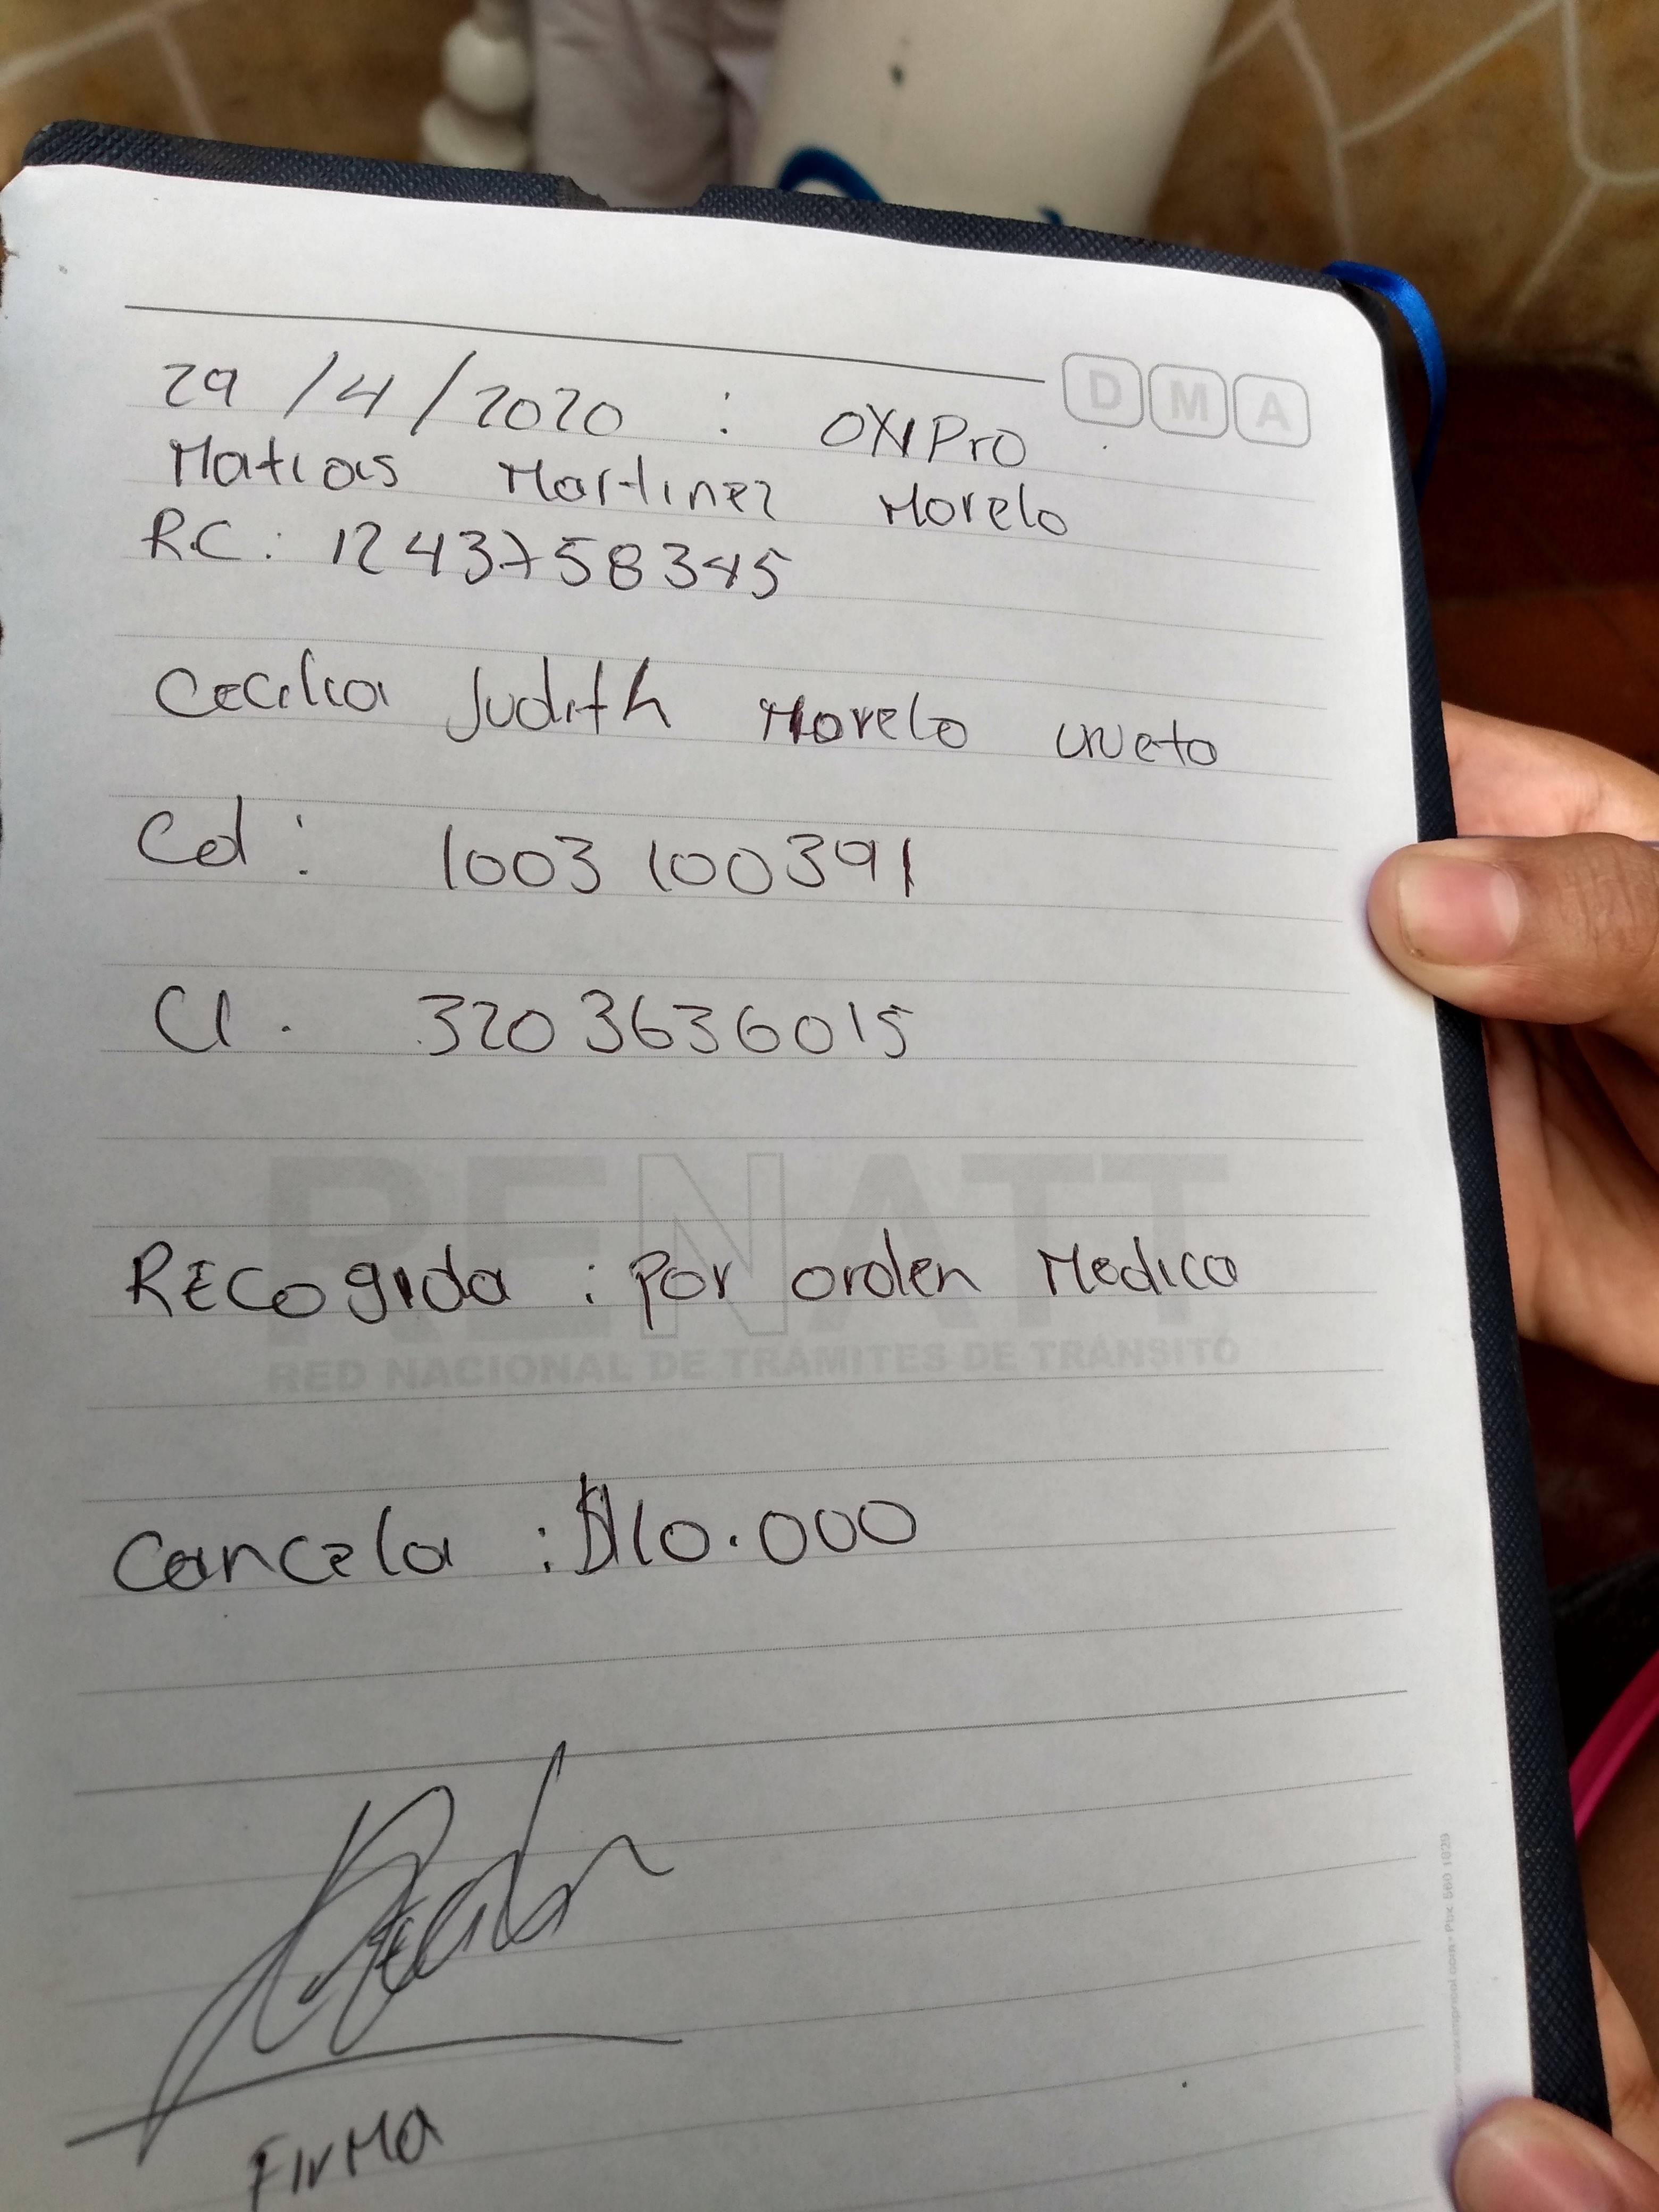 D M A
29/4/2020 : OXIPro
Matias Martinez Morelo
RC: 1243758345
Cecilia Judith Morelo
Cd: 1003100391
Cl. 3203636015
RENATT
RECogida : por orden Medica
RED NACIONAL DE TRÁMITES DE TRÁNSITO
Cancela : $10.000
FirMa